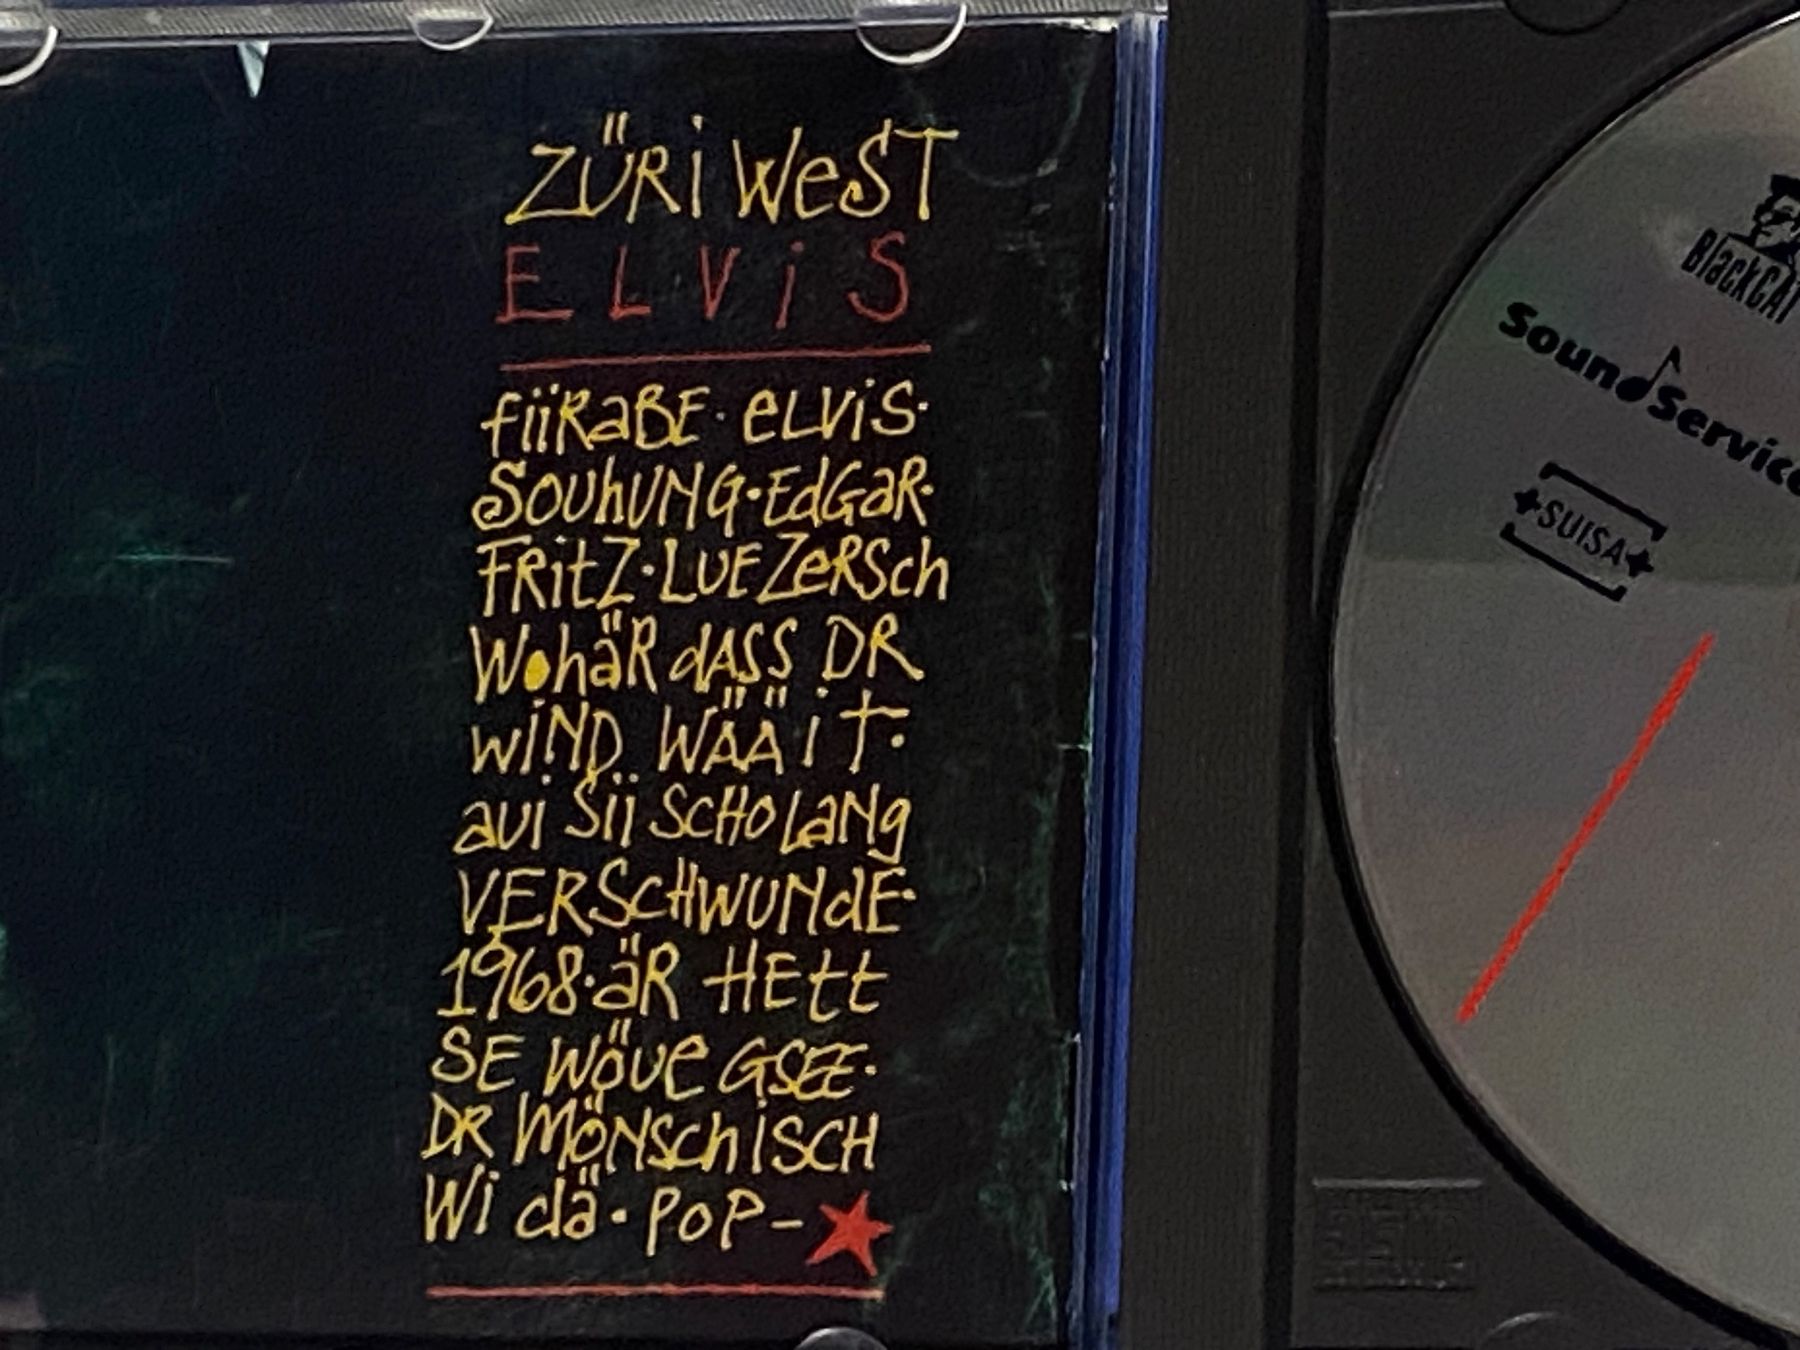 ZÜRi WeST
ELViS
fiiRaBE · eLViS ·
SOUhUNG · EdGaR ·
FRitZ · LUEZeRSch
WohäR dASS DR
WiND WÄÄiT ·
aui Sii ScHo LaNg
VERScHWUNdE ·
1968 · äR HEtt
SE WöUe GSEE ·
DR MöNSch iSCH
Wi dä · PoP - ★
BlackCAT
SoundService
SUISA